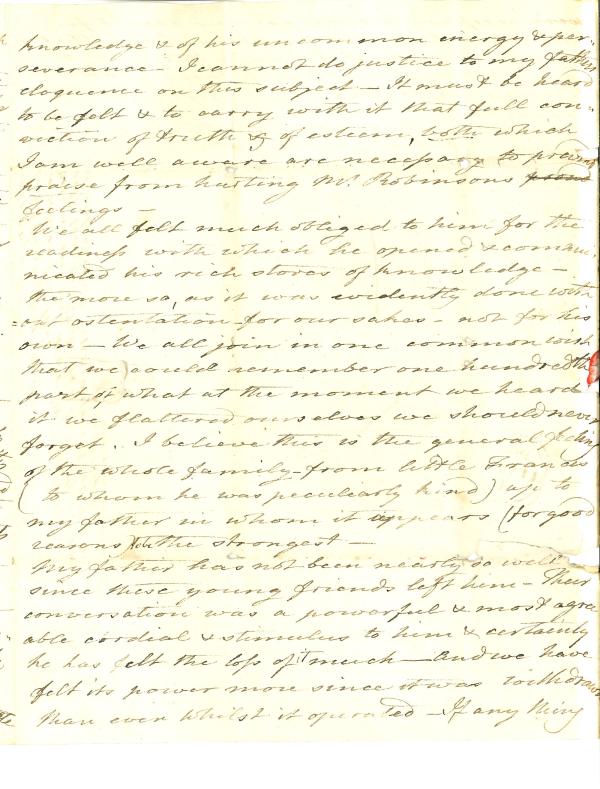 knowledge & of his uncommon energy & per-
severance - I cannot do justice to my fathers
eloquence on this subject - It must be heard
to be felt & to carry with it that full con-
viction of truth & of esteem, both which
I am well aware are necessary to prevent
praise from hurting Mr. Robinsons
feelings -
We all felt much obliged to him for the
readiness with which he opened & commu-
nicated his rich stores of knowledge -
the more so, as it was evidently done with
=out ostentation - for our sakes - not for his
own - We all join in one common wish
that we could remember one hundredth
part of what at the moment we heard
it we flattered ourselves we should never
forget. I believe this is the general feeling
of the whole family - from little Francis
(to whom he was peculiarly kind) up to
my father in whom it appears (for good
reasons) the strongest -
My father has not been nearly so well
since these young friends left him - Their
conversation was a powerful & most agree
able cordial & stimulus to him & certainly
he has felt the loss of it much - And we have
felt its power more since it was withdrawn
than even whilst it operated - If any thing